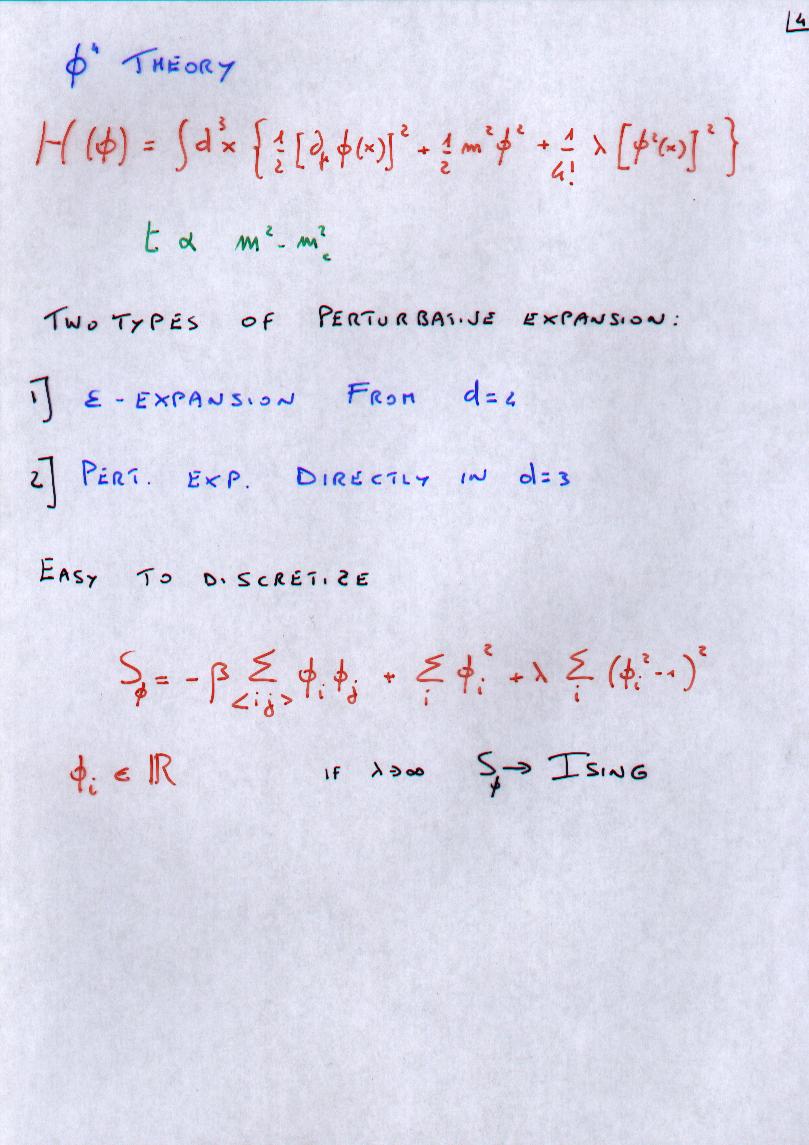 4
ϕ⁴ THEORY
H(ϕ) = ∫d³x {1/2 [∂μ ϕ(x)]² + 1/2 m²ϕ² + 1/4! λ [ϕ²(x)]²}
t ∝ m² - m²c
TWO TYPES OF PERTURBATIVE EXPANSION:
1] ε-EXPANSION FROM d=4
2] PERT. EXP. DIRECTLY IN d=3
EASY TO DISCRETIZE
Sϕ = -β Σ<ij> ϕi ϕj + Σi ϕi² + λ Σi (ϕi²-1)²
ϕi ∈ ℝ IF λ→∞ Sϕ → ISING